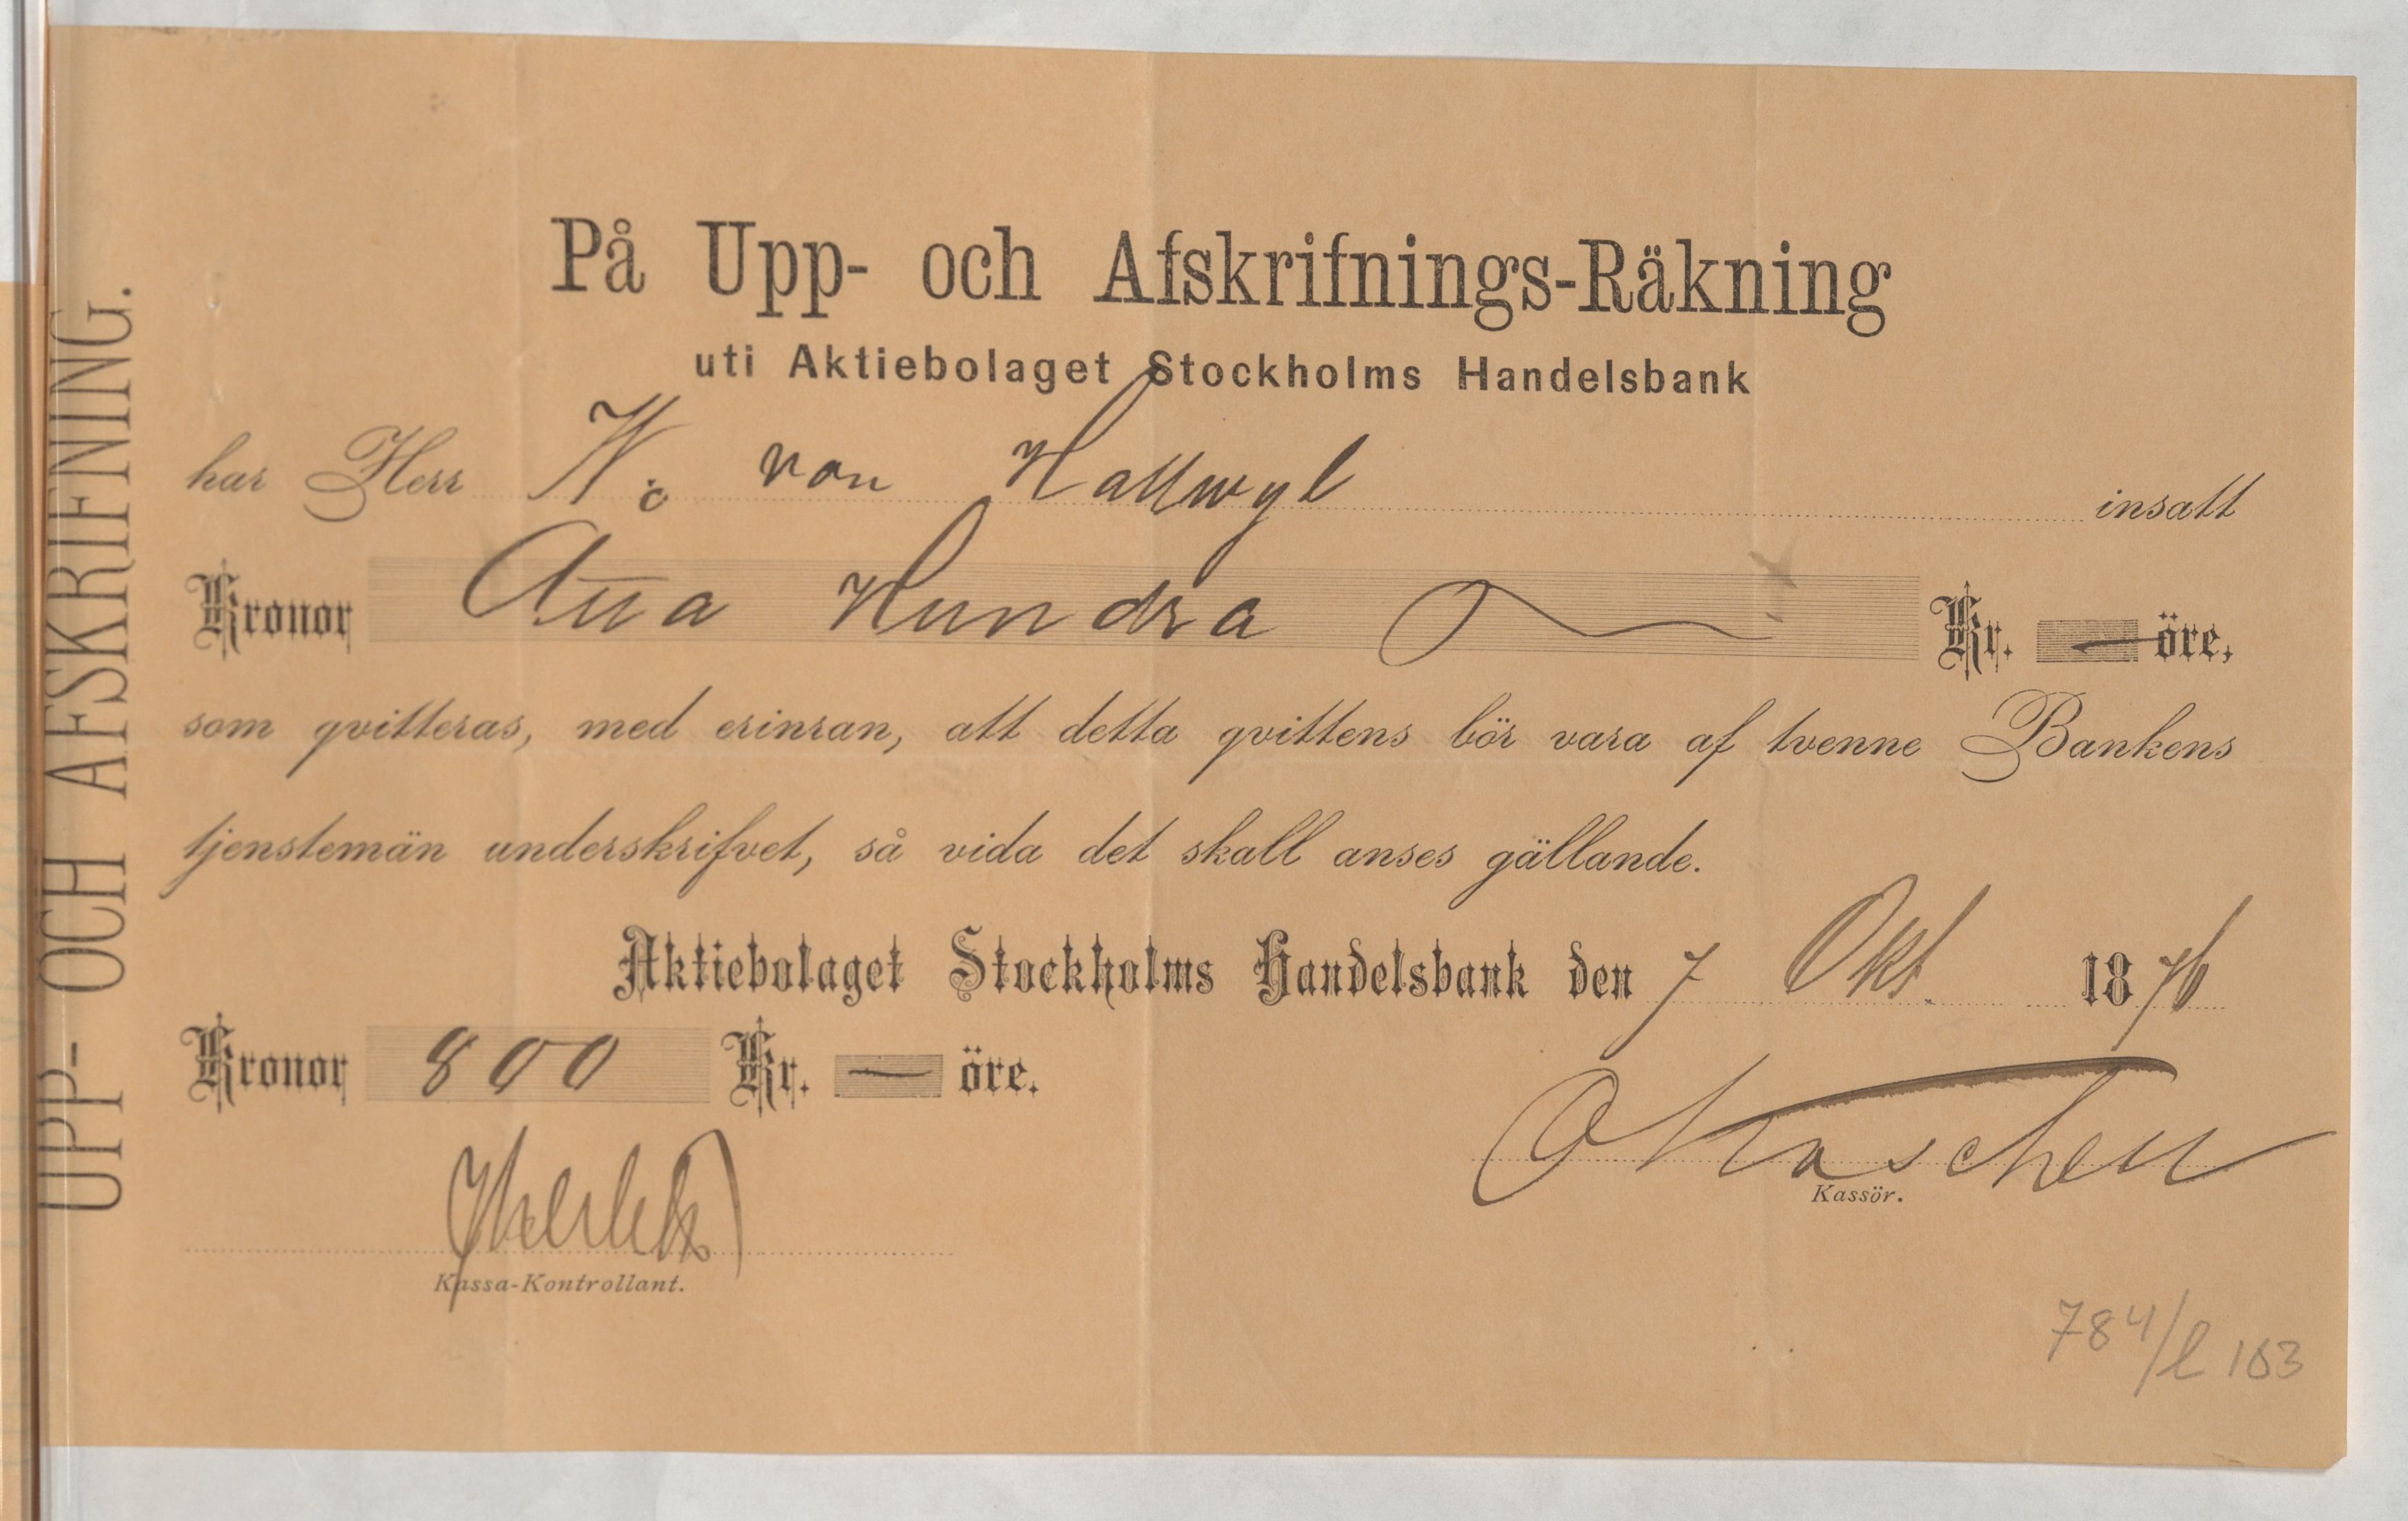 UPP- OCH AFSKRIFNING.
På Upp- och Afskrifnings-Räkning
uti Aktiebolaget Stockholms Handelsbank
har Herr W. von Hallwyl insatt
Kronor Åtta Hundra Kr. — öre,
som qvitteras, med erinran, att detta qvittens bör vara af tvenne Bankens
tjenstemän underskrifvet, så vida det skall anses gällande.
Aktiebolaget Stockholms Handelsbank den 7 Okt. 1876
Kronor 800 Kr. — öre.
Kassör.
Kassa-Kontrollant.
784/l 163